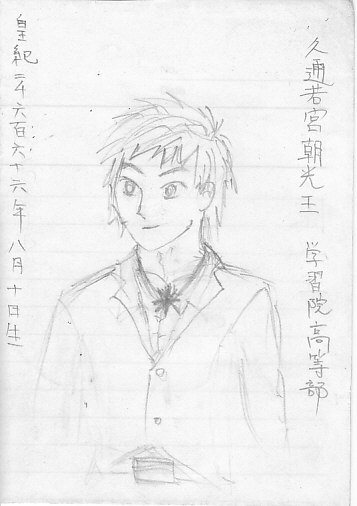 久邇若宮朝光王 学習院高等部
皇紀二千六百六十六年八月十日生